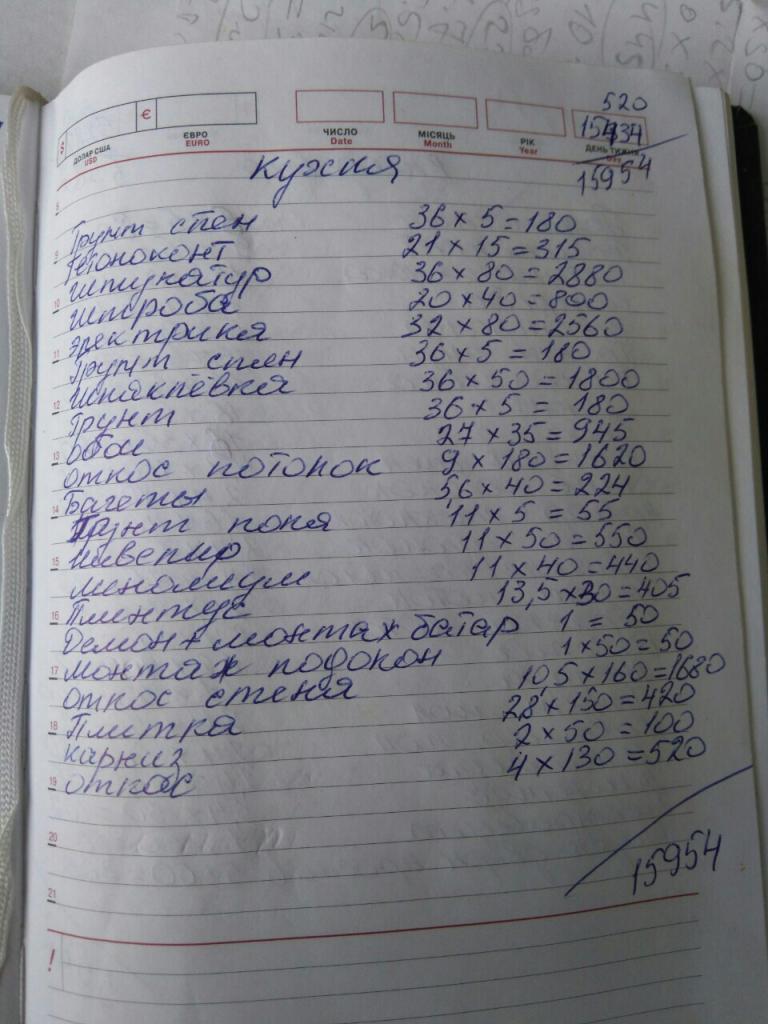 520
15434
15954
$ ДОЛАР США USD
€ ЄВРО EURO
ЧИСЛО Date
МІСЯЦЬ Month
РІК Year
ДЕНЬ ТИЖНЯ
кухня
8
Грунт стен 36 x 5 = 180
9 Бетоноконт 21 x 15 = 315
шпукатур 36 x 80 = 2880
10 Штроба 20 x 40 = 800
электрика 32 x 80 = 2560
11 Грунт стен 36 x 5 = 180
Шпаклёвка 36 x 50 = 1800
12 Грунт 36 x 5 = 180
обои 27 x 35 = 945
13 откос потолок 9 x 180 = 1620
Багеты 5,6 x 40 = 224
14 Грунт пола 11 x 5 = 55
нивелир 11 x 50 = 550
15 линолиум 11 x 40 = 440
Плинтус 13,5 x 30 = 405
16 Демон + монтаж батар 1 = 50
монтаж подокон 1 x 50 = 50
17 откос стеня 10,5 x 160 = 1680
Плитка 2,8 x 150 = 420
18 карниз 2 x 50 = 100
откос 4 x 130 = 520
19
20
15954
21
!